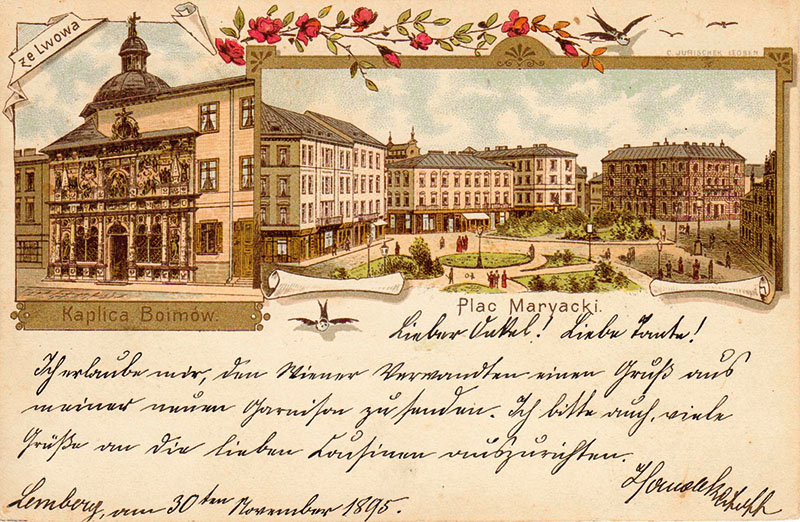 ze Lwowa
C. JURISCHEK LEOBEN
Kaplica Boimów.
Plac Maryacki.
Lieber Onkel! Liebe Tante!
Ich erlaube mir, den Wiener Verwandten einen Gruß aus
meiner neuen Garnison zu senden. Ich bitte auch, viele
Grüße an die lieben Cousinen auszurichten.
Lemberg, am 30ten November 1895.